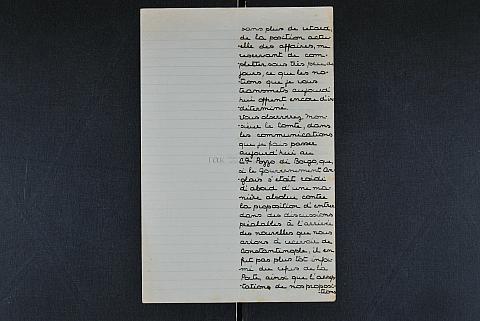 sans plus de retard,
de la position actu-
elle des affaires, me
réservant de com-
pléter sous très peu de
jours, ce que les no-
tions que je vous
transmets aujourd'
hui offrent encore d'in-
déterminé.
Vous observerez, Mon-
sieur le Comte, dans
les communications
que je fais passer
aujourd'hui au
Cte Pozzo di Borgo, que,
si le Gouvernement An-
glais s'était roidi
d'abord d'une ma-
nière absolue contre
la proposition d'entrer
dans des discussions
préalables à l'arrivée
des nouvelles que nous
avions à recevoir de
Constantinople, il en
fut pas plus tôt infor-
mé du refus de la
Porte, ainsi que l'accep-
tation de nos proposi-
tions